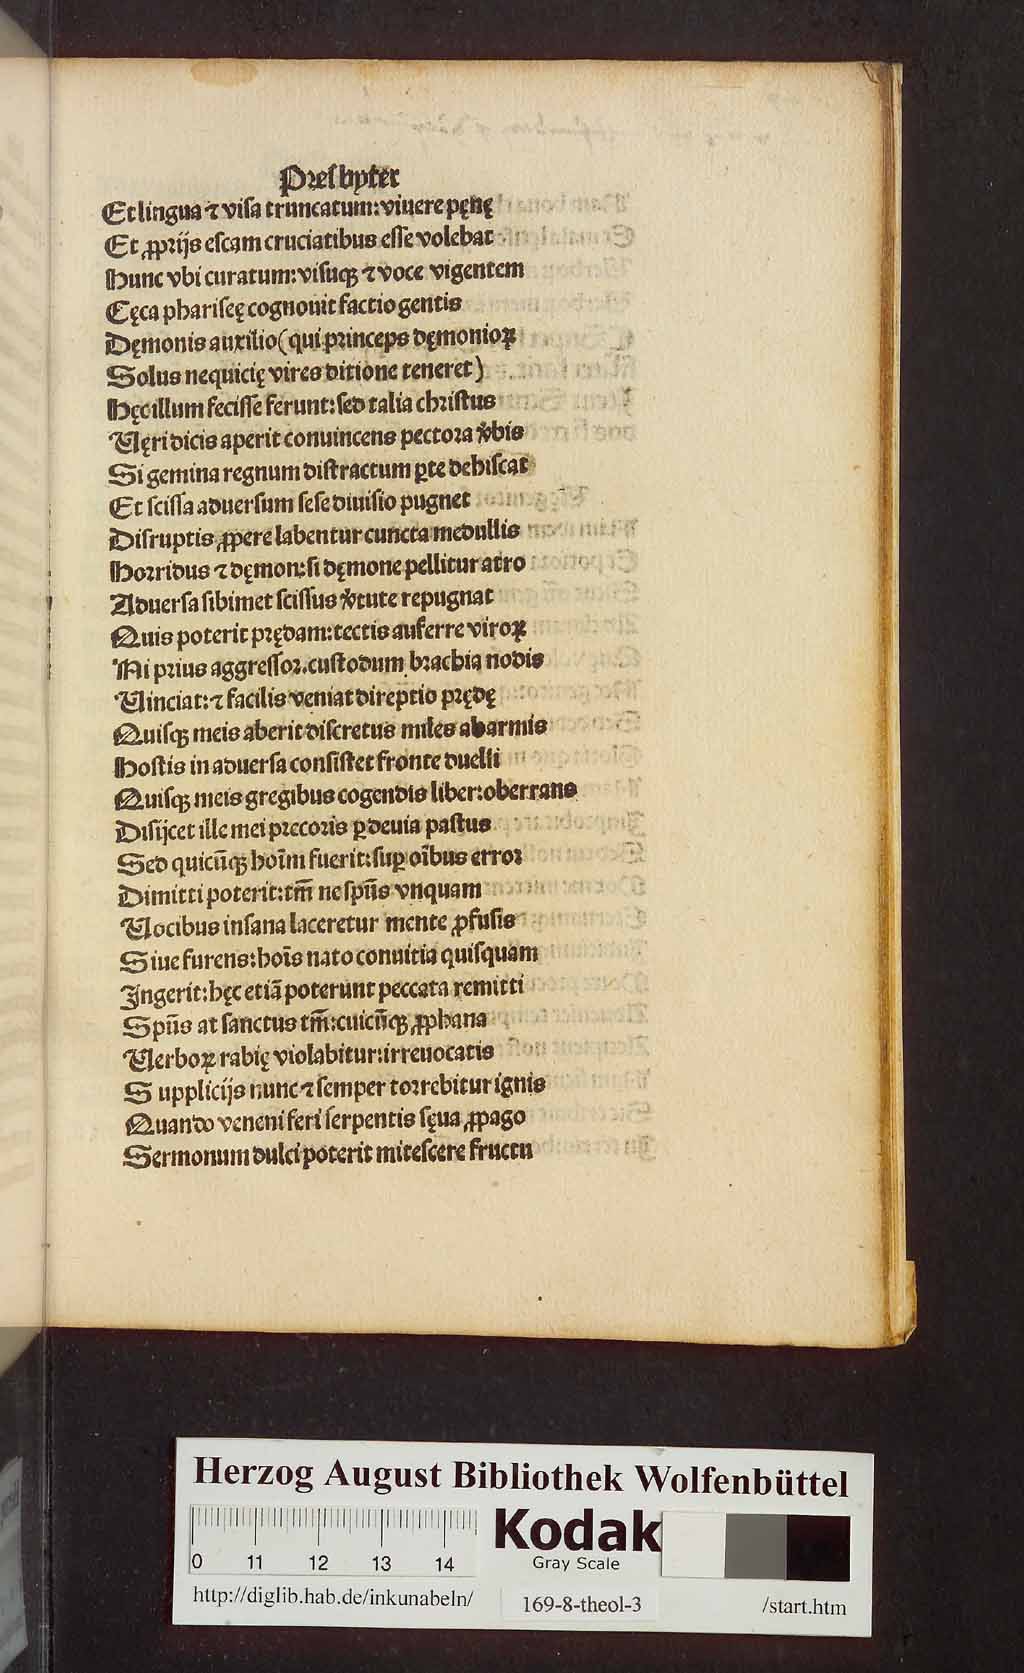 Presbyter
Et lingua ⁊ visa truncatum: viuere pęnę
Et ꝓprijs escam cruciatibus esse volebat
Hunc vbi curatum: visuqꝫ ⁊ voce vigentem
Cęca phariseę cognouit factio gentis
Dęmonis auxilio (qui princeps dęmonioꝝ
Solus nequicię vires ditione teneret)
Hęc illum fecisse ferunt: sed talia christus
Veri dicis aperit conuincens pectora v̾bis
Si gemina regnum distractum ꝑte dehiscat
Et scissa aduersum sese diuisio pugnet
Disruptis ꝓpere labentur cuncta medullis
Horridus ⁊ dęmon: si dęmone pellitur atro
Aduersa sibimet scissus v̾tute repugnat
Quis poterit prędam: tectis auferre viroꝝ
Ni prius aggressor. custodum brachia nodis
Vinciat: ⁊ facilis veniat direptio prędę
Quisqꝫ meis aberit discretus miles ab armis
Hostis in aduersa consistet fronte duelli
Quisqꝫ meis gregibus cogendis liber: oberrans
Disijcet ille mei precoris ꝑ deuia pastus
Sed quicūqꝫ hoīm fuerit: suꝑ oībus error
Dimitti poterit: tm̄ ne spūs vnquam
Vocibus insana laceretur mente ꝓfusis
Siue furens: hoīs nato conuitia quisquam
Ingerit: hęc etiā poterunt peccata remitti
Spūs at sanctus tm̄: cuicūqꝫ ꝓphana
Verboꝝ rabię violabitur: irreuocatis
Supplicijs nunc ⁊ semper torrebitur ignis
Quando veneni feri serpentis sęua ꝓpago
Sermonum dulci poterit mitescere fructu
Herzog August Bibliothek Wolfenbüttel
0 11 12 13 14
Kodak
Gray Scale
http://diglib.hab.de/inkunabeln/ 169-8-theol-3 /start.htm